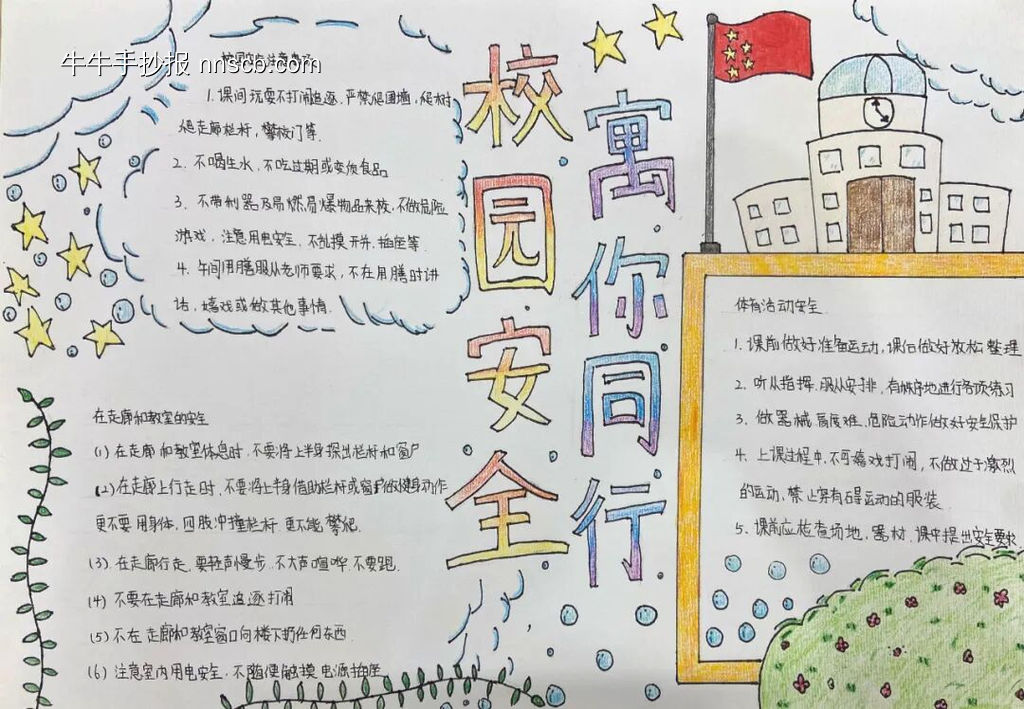 牛牛手抄报 nnscb.com
校园安全
寓你同行
1. 课间玩耍不打闹追逐,严禁爬围墙,爬树
爬走廊栏杆,攀校门等.
2. 不喝生水,不吃过期或变质食品
3. 不带利器及易燃易爆物品来校,不做危险
游戏,注意用电安全,不乱摸开关,插座等.
4. 午间用膳服从老师要求,不在用膳时讲
话,嬉戏或做其他事情.
在走廊和教室的安全
(1) 在走廊和教室休息时,不要将上半身探出栏杆和窗户
(2) 在走廊上行走时,不要将上半身借助栏杆或窗户做健身动作
更不要用身体,四肢冲撞栏杆,更不能攀爬.
(3) 在走廊行走,要轻声慢步,不大声喧哗,不要跑.
(4) 不要在走廊和教室追逐打闹
(5) 不在走廊和教室窗口向楼下扔任何东西
(6) 注意室内用电安全,不随便触摸电源插座
体育活动安全
1. 课前做好准备运动,课后做好放松整理
2. 听从指挥,服从安排,有秩序地进行各项练习
3. 做器械高度难、危险动作做好安全保护
4. 上课过程中,不可嬉戏打闹,不做过于激烈
的运动,禁止穿有碍运动的服装.
5. 课前应检查场地,器材,课中提出安全要求